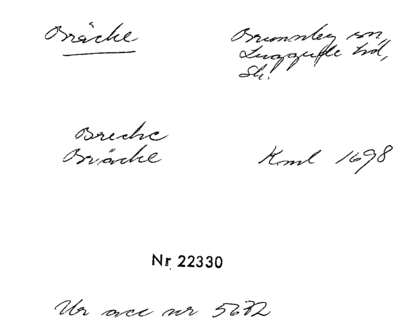 Bräcke
Brunnby sn,
Luggude hd,
Sk.
Breche
Bräcke
Kml 1698
Nr 22330
Ur acc nr 5672